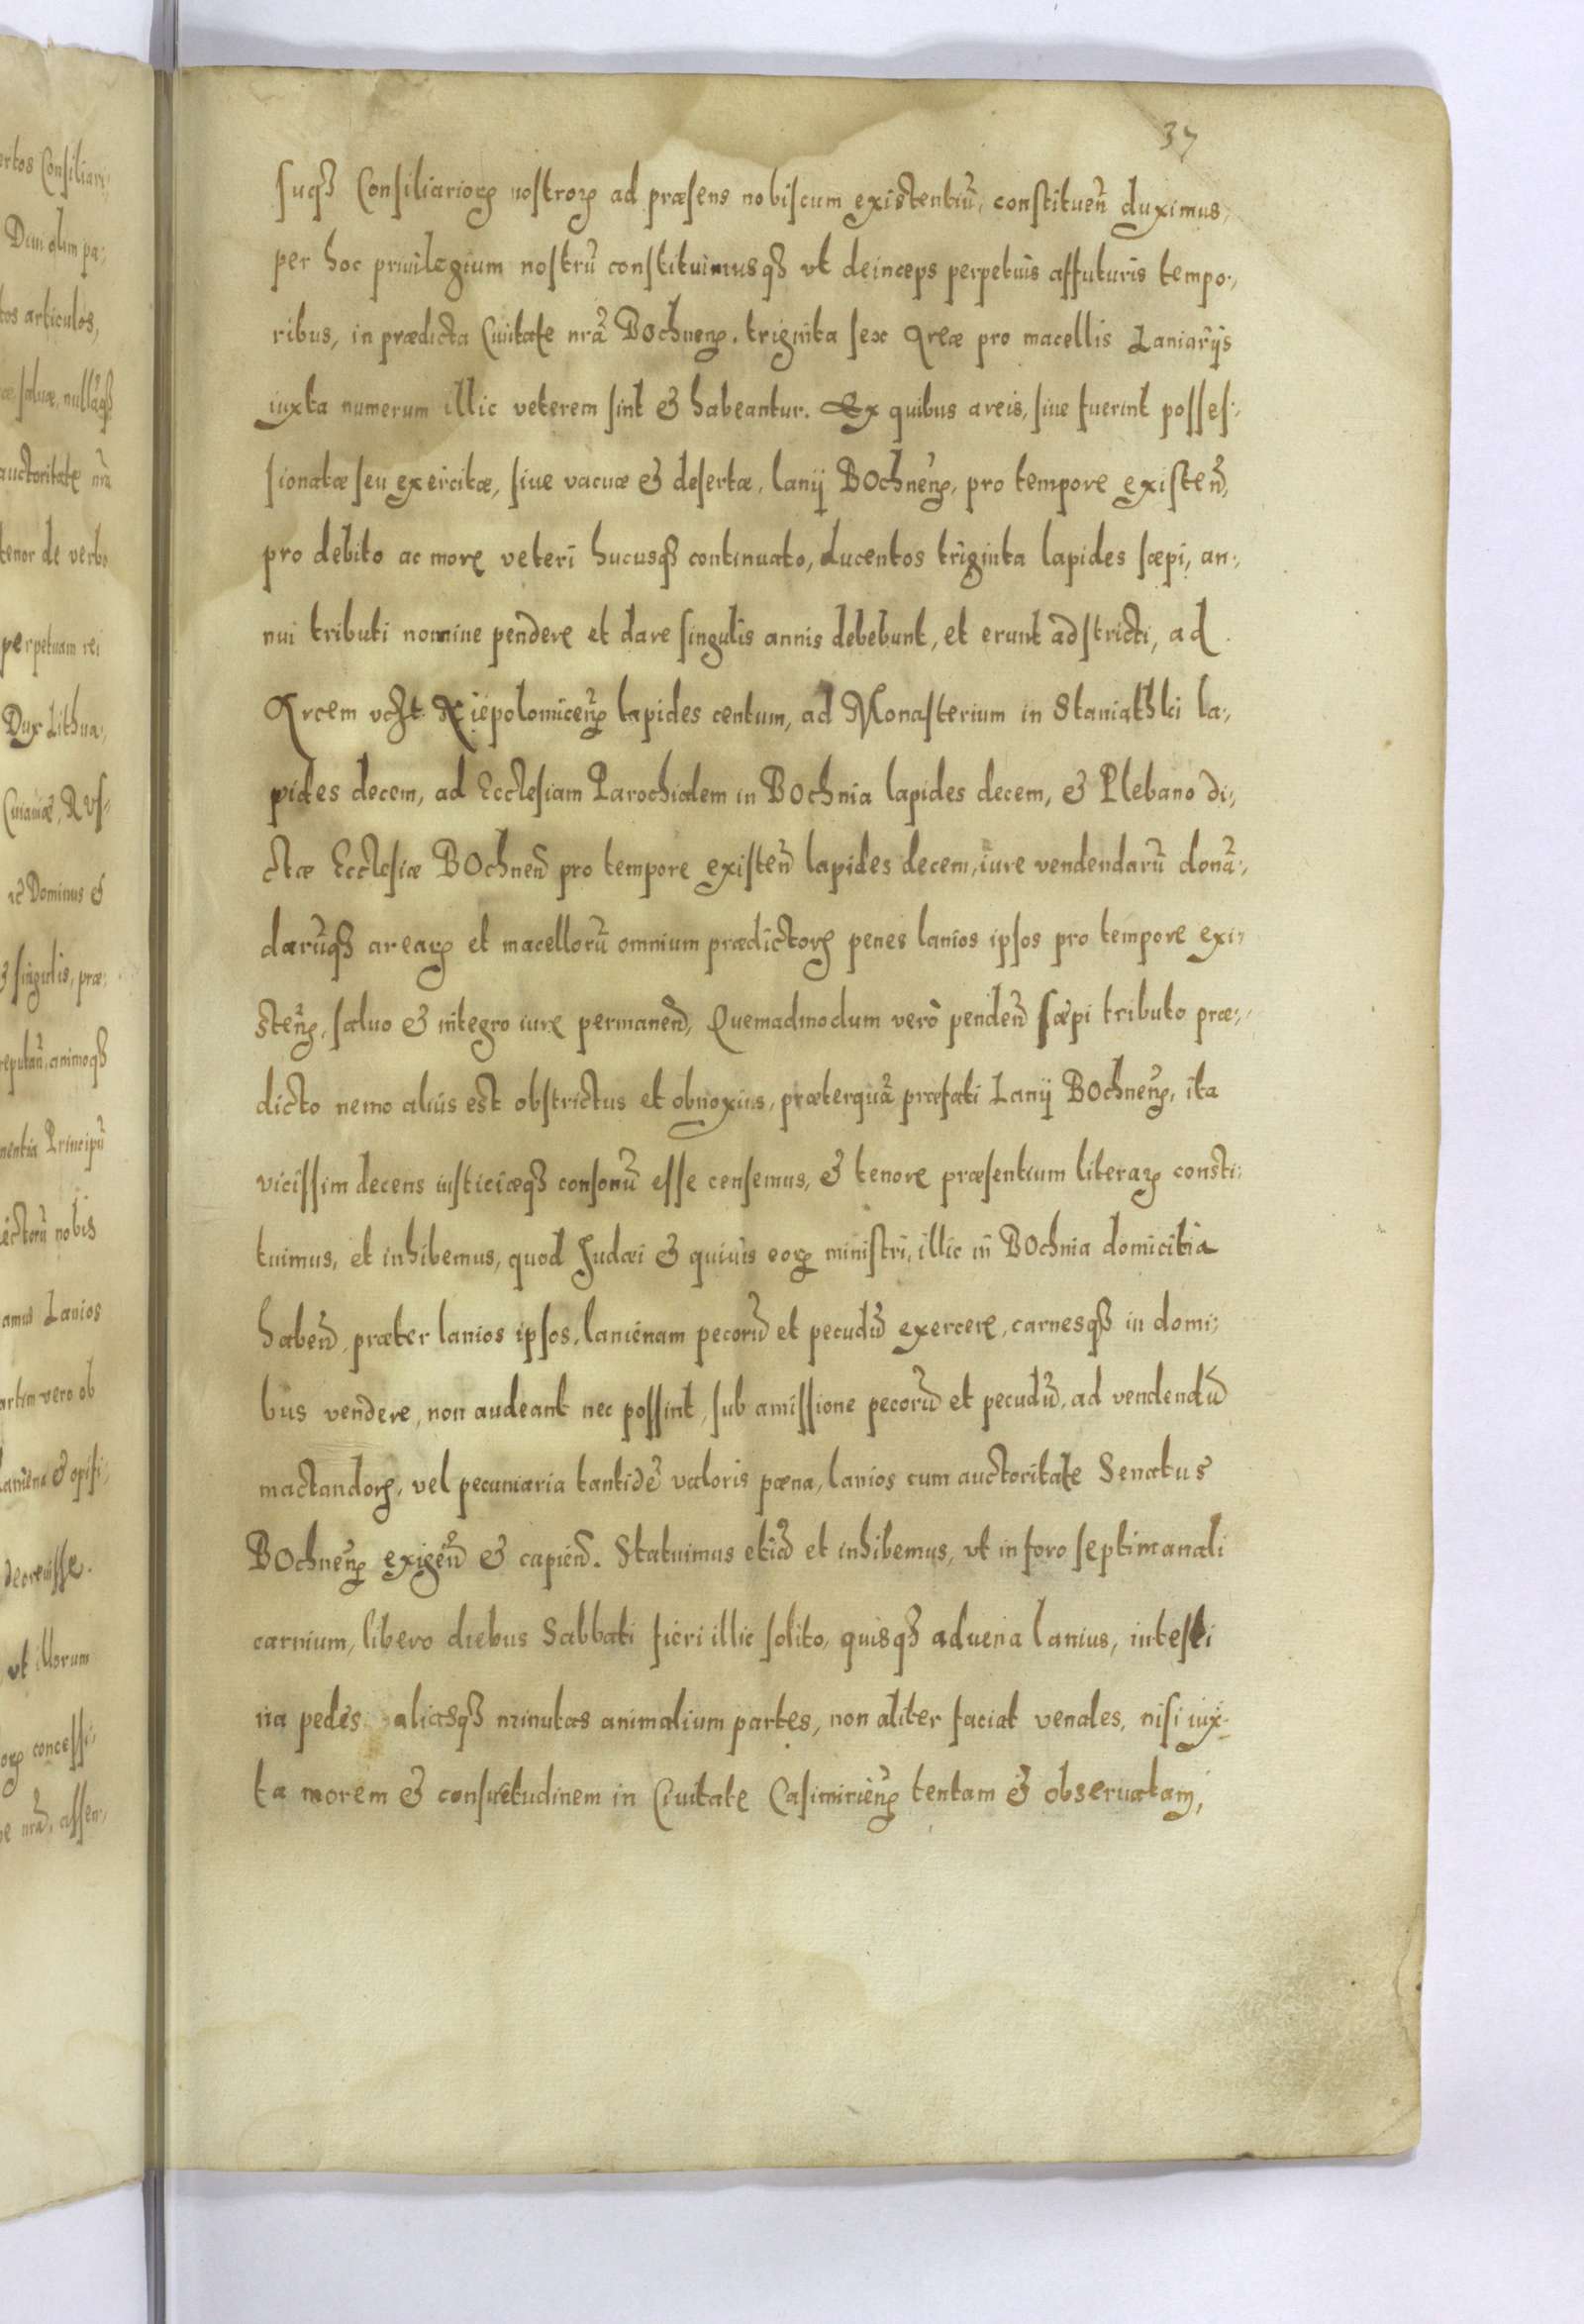 37
suqꝫ Consiliarioꝝ nostroꝝ ad præsens nobiscum existentiũ, constitueñ duximus,
per hoc priuilegium nostrũ constituimusqꝫ vt deinceps perpetuis affuturis tempo-
ribus, in prædicta Ciuitate nrã Bochneñ. triginta sex Areæ pro macellis Laniarijs
iuxta numerum illic veterem sint & habeantur. Ex quibus areis, siue fuerint posses-
sionatæ seu exercitæ, siue vacuæ & desertæ, lanij Bochneñ, pro tempore existeñ,
pro debito ac more veteri hucusqꝫ continuato, ducentos triginta lapides sæpi, an-
nui tributi nomine pendere et dare singulis annis debebunt, et erunt adstricti, ad
Arcem Niepolomiceñ lapides centum, ad Monasterium in Staniathki la-
pides decem, ad Ecclesiam Parochialem in Bochnia lapides decem, & Plebano di-
ctæ Ecclesiæ Bochneñ pro tempore existeñ lapides decem, iure vendendarũ donã-
darũqꝫ arearꝝ et macellorũ omnium prædictorꝝ penes lanios ipsos pro tempore exi-
steñ, saluo & integro iure permaneñ, Quemadmodum verò pendeñ sæpi tributo præ-
dicto nemo alius est obstrictus et obnoxius, præterquã præfati Lanij Bochneñ, ita
vicissim decens iusticiæqꝫ consonũ esse censemus, & tenore præsentium literaꝝ consti-
tuimus, et inhibemus, quod Judæi & quiuis eoꝝ ministri, illic in Bochnia domicilia
habeñ, præter lanios ipsos, lanienam pecorũ et pecudũ exercere, carnesqꝫ in domi-
bus vendere, non audeant nec possint, sub amissione pecorũ et pecudũ, ad vendendũ
mactandorꝝ, vel pecuniaria tantidẽ valoris pæna, lanios cum auctoritate Senatus
Bochneñ exigeñ & capieñ. Statuimus etiã et inhibemus, vt in foro septimanali
carnium, libero diebus Sabbati fieri illic solito, quisqꝫ aduena lanius, intesti
na pedes aliasqꝫ minutas animalium partes, non aliter faciat venales, nisi iux-
ta morem & consuetudinem in Ciuitate Casimirieñ tentam & obseruatam,